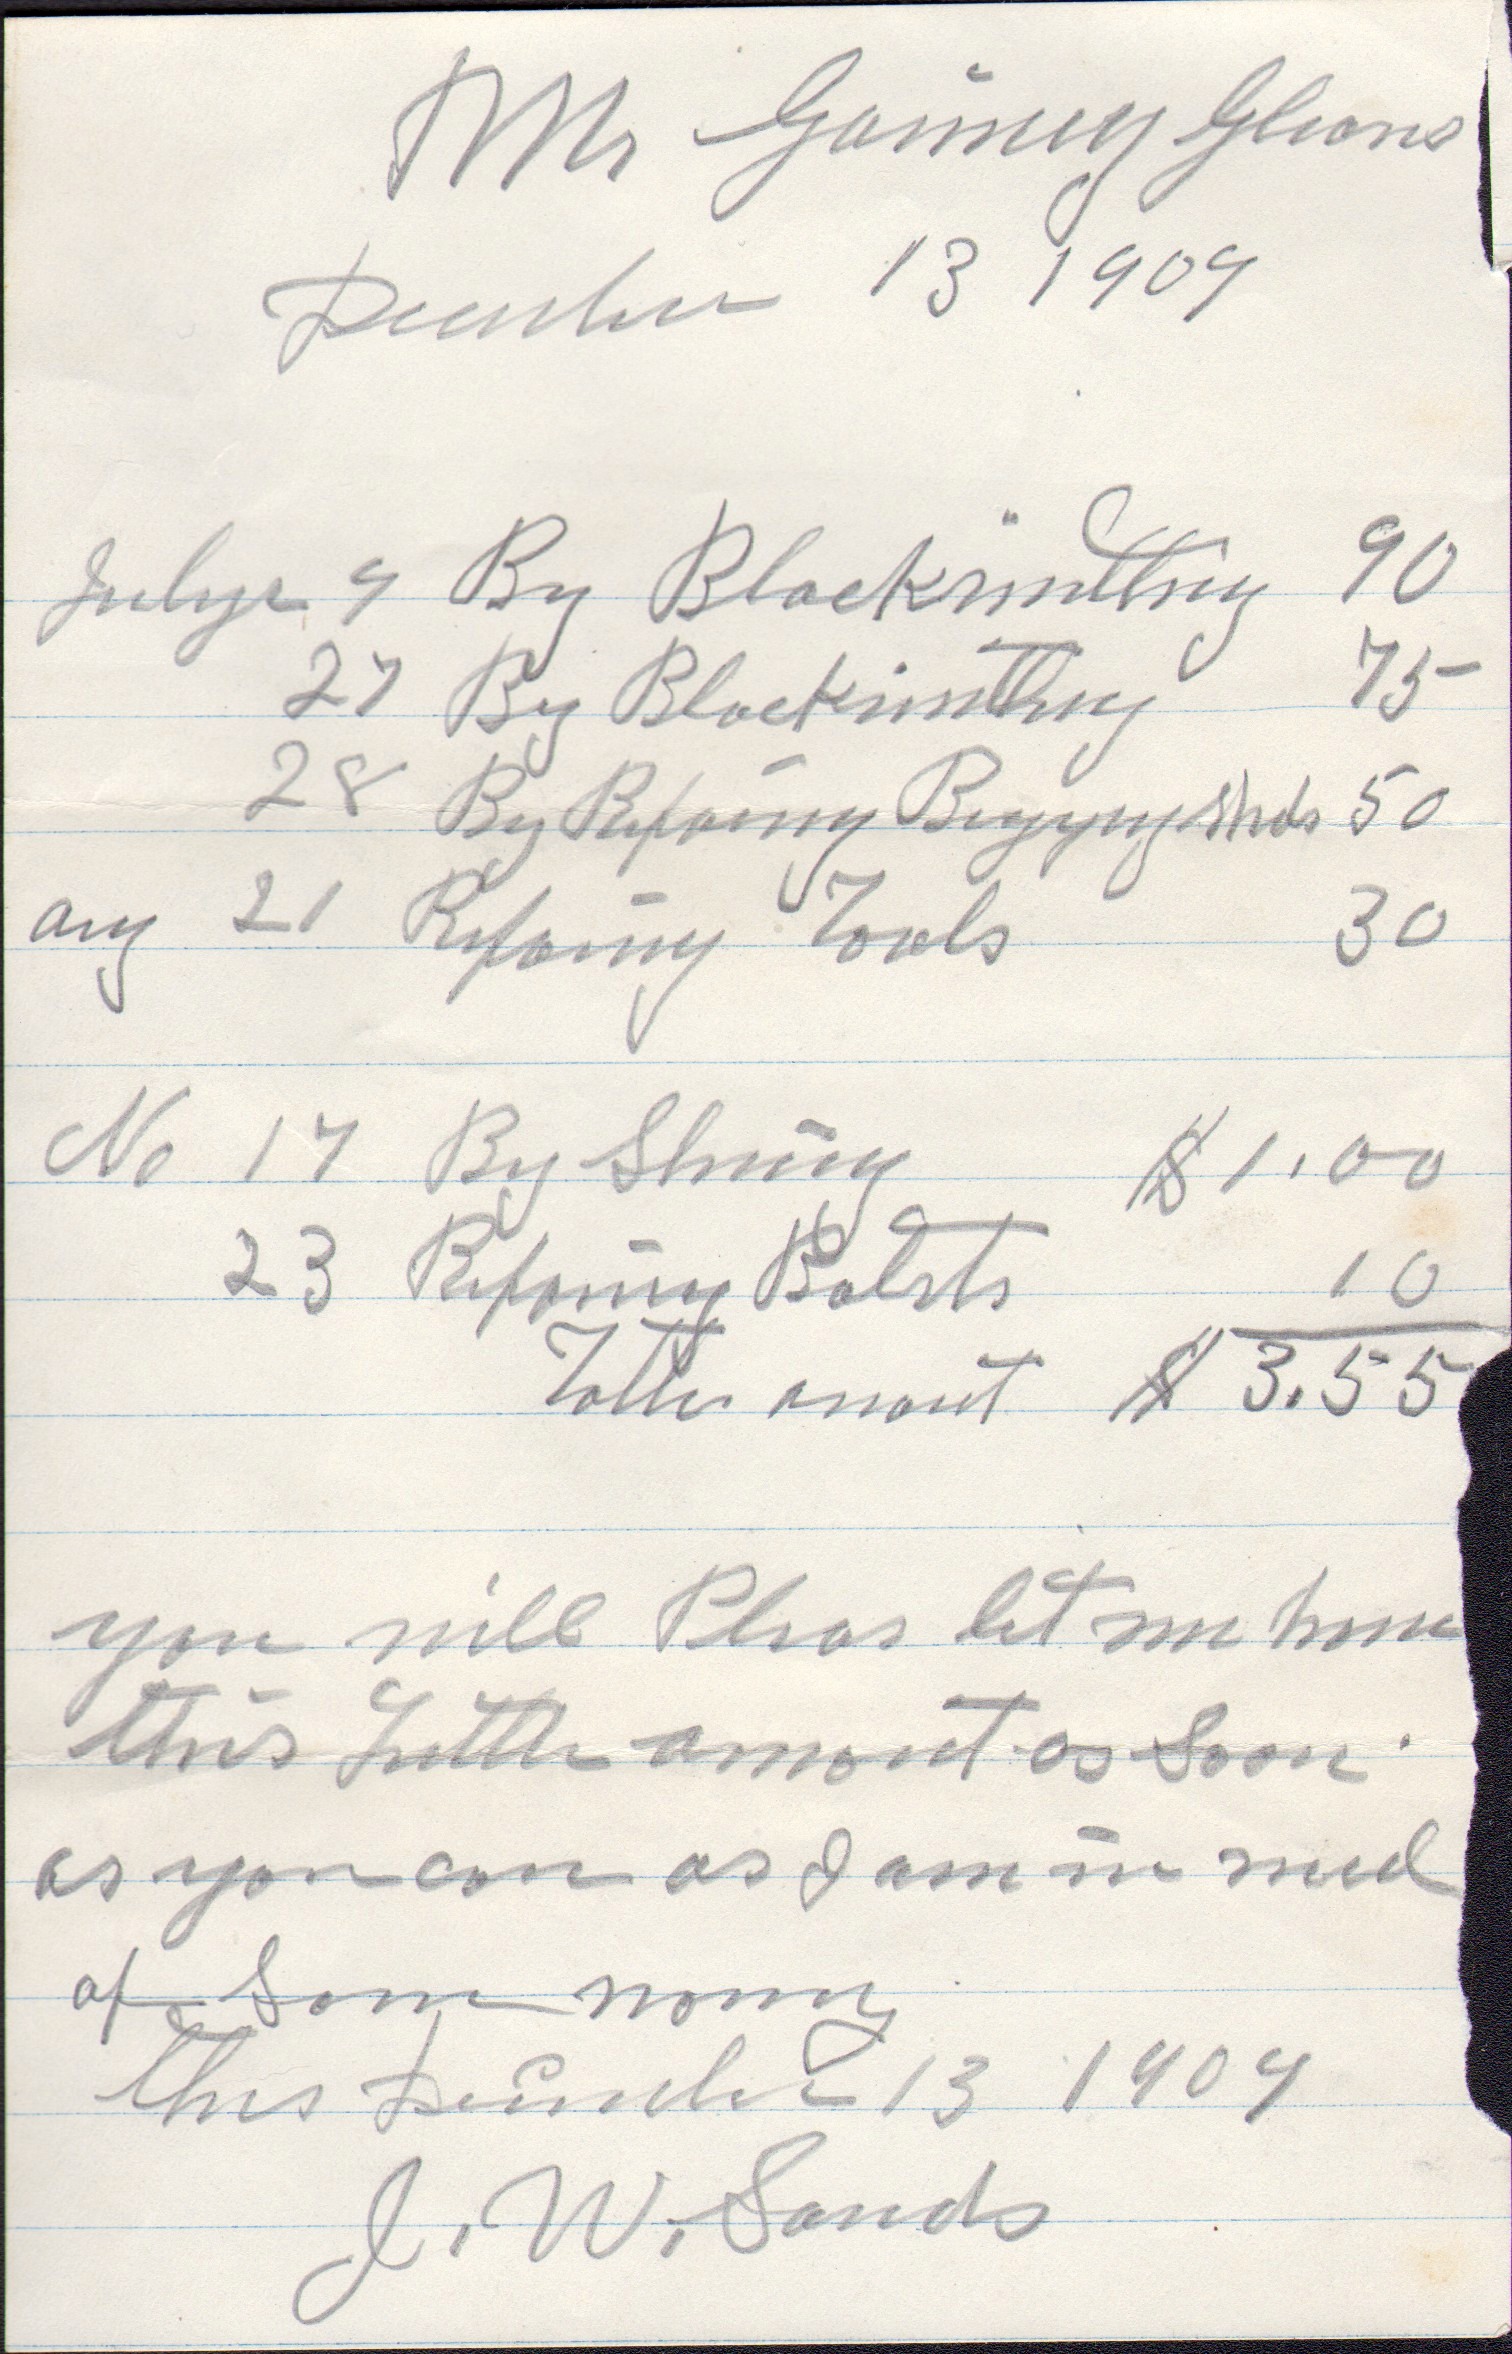 Mr Gainney Gleans
December 13 1909
July 9 By Blacksmithing 90
27 By Blacksmithing 75
28 By Repairing Buggy 50
aug 21 Repairing Tools 30
No 17 By Shoeing $1.00
23 Repairing Bolsts 10
Totle amount $3.55
you will Pleas let me have
this Little amount as Soon
as you can as I am in need
of Some money
this December 13 1909
J. W. Sands